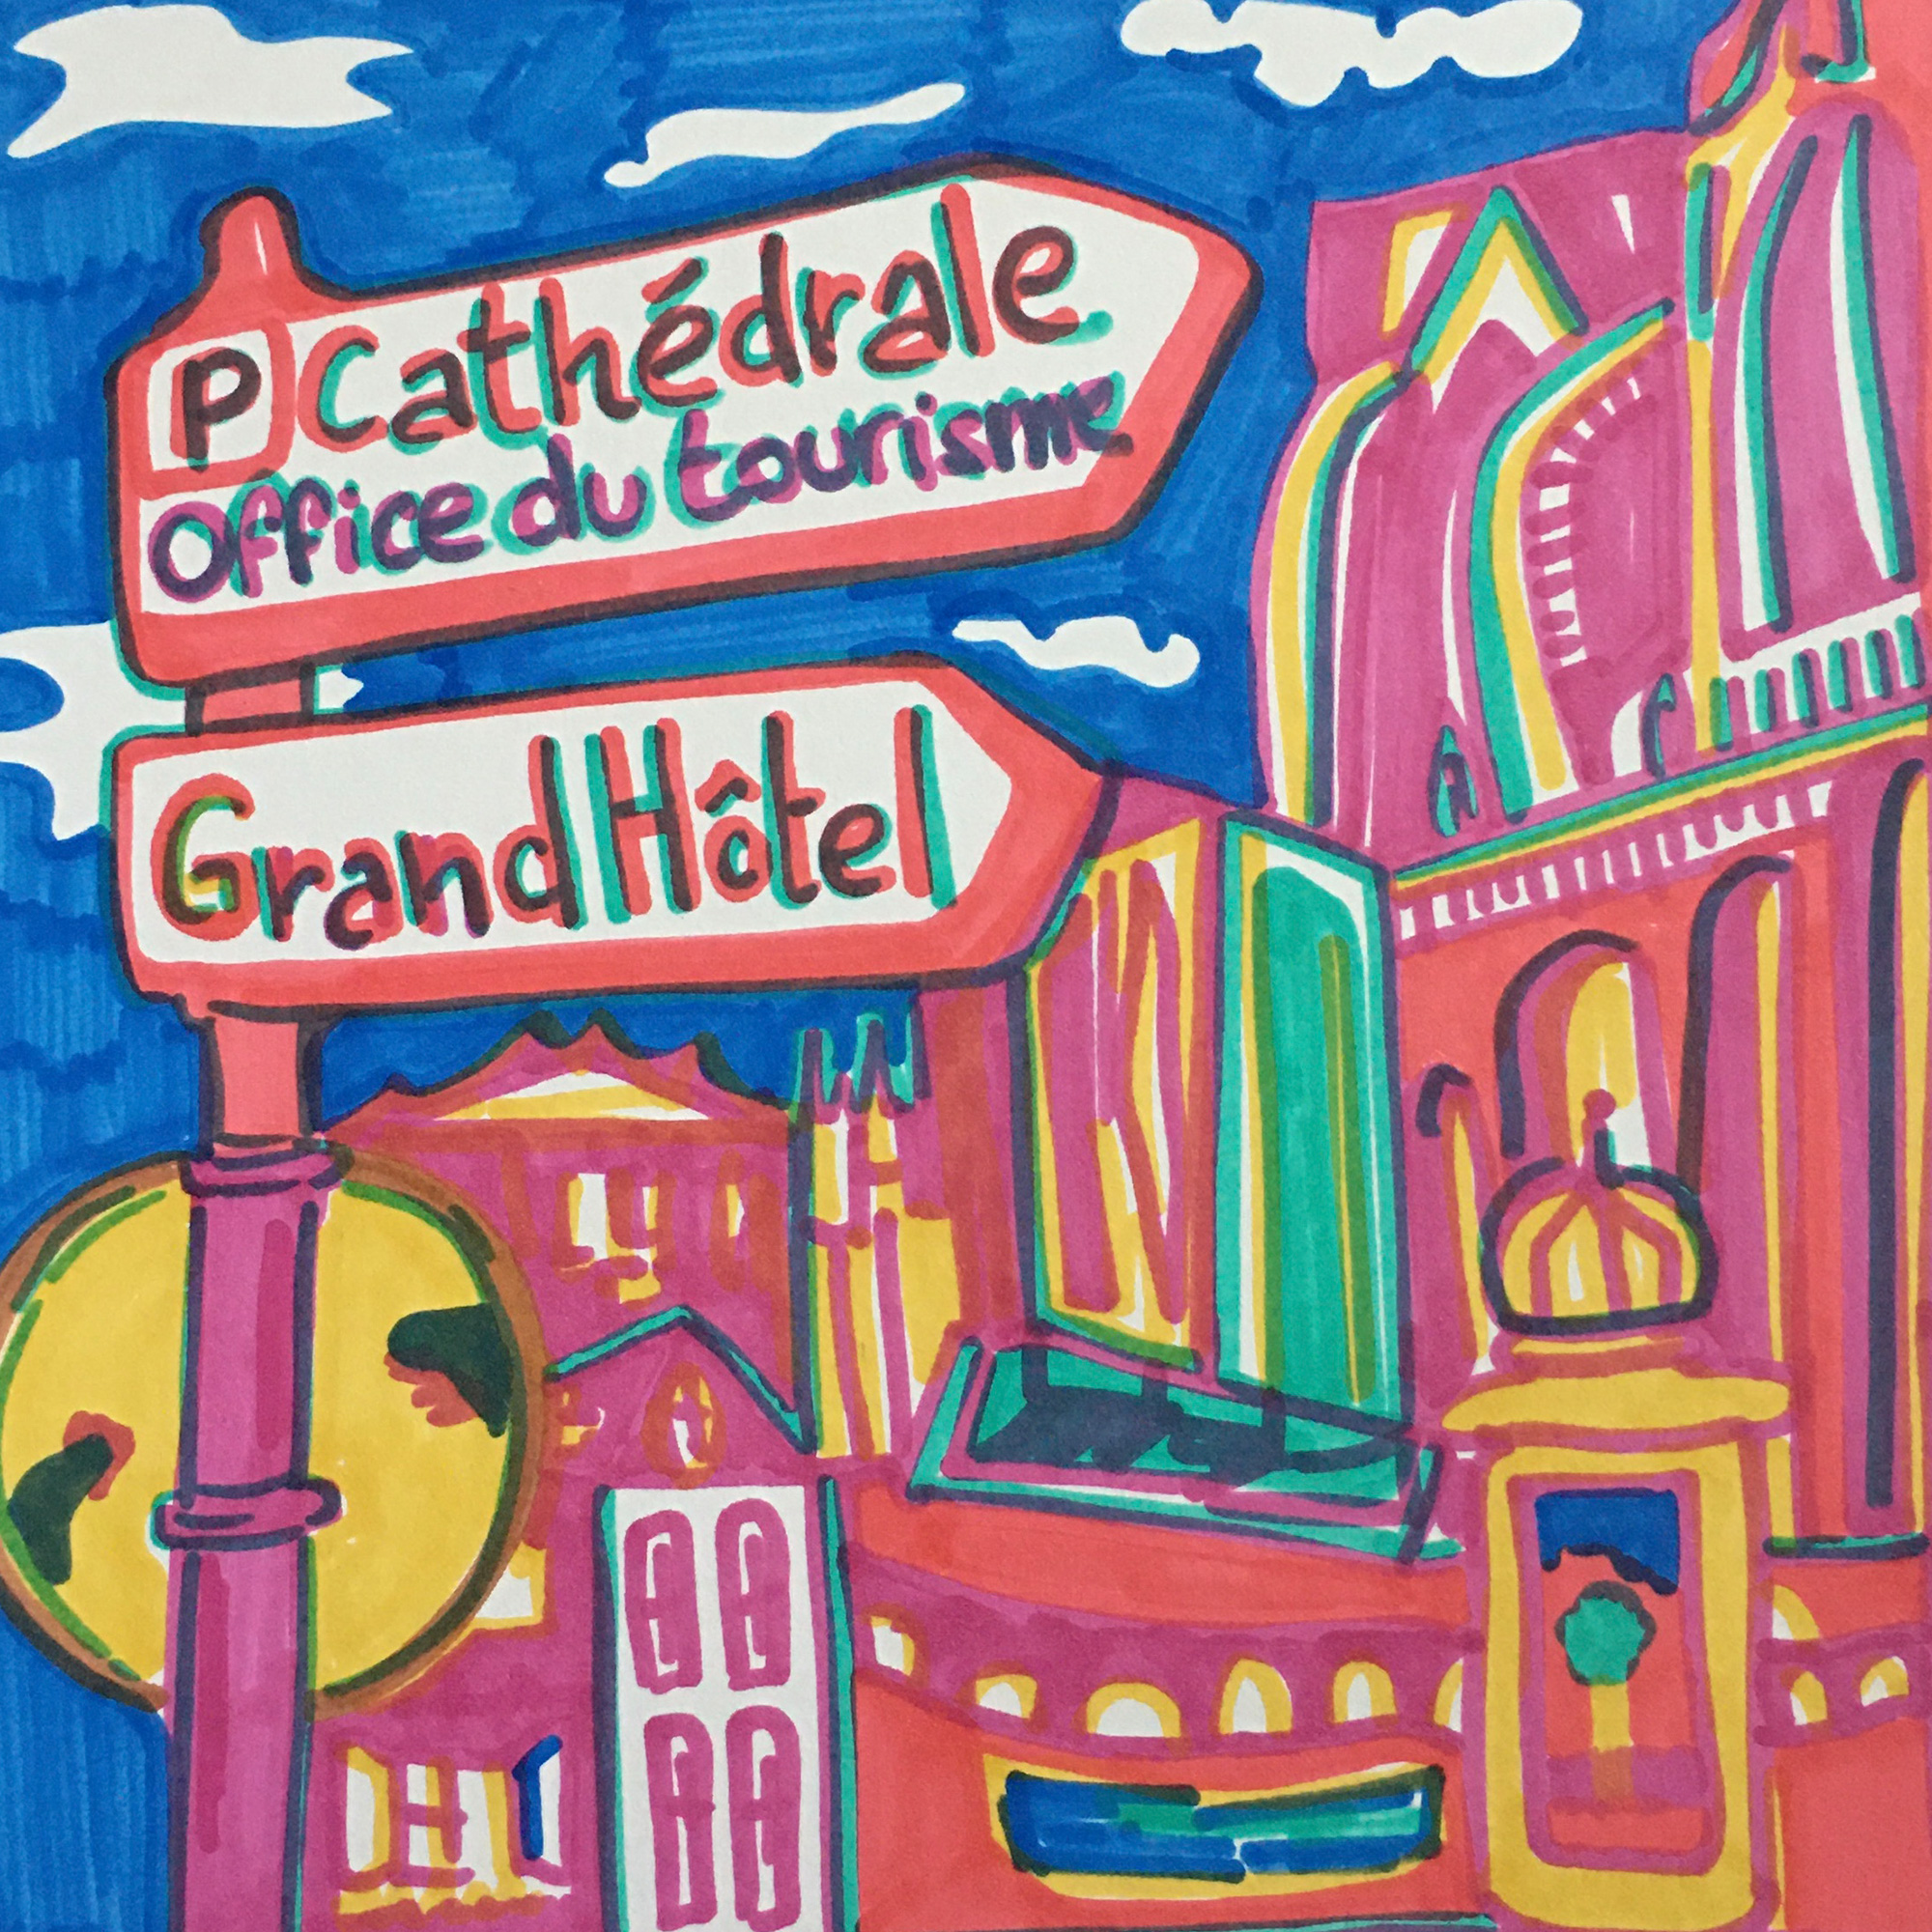 P Cathédrale
Office du tourisme
Grand Hôtel